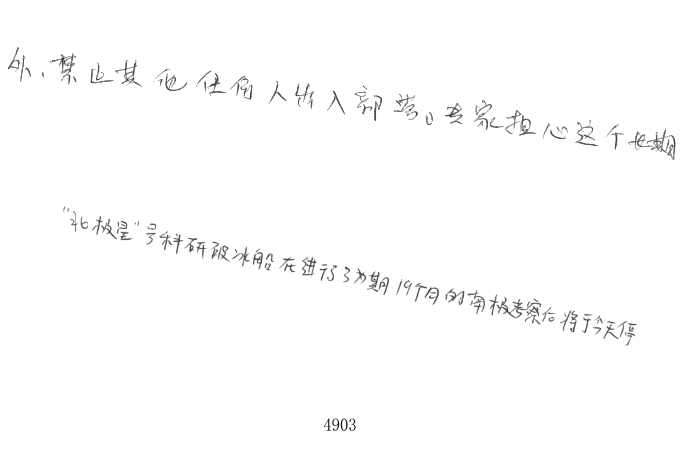 外，禁止其他任何人出入部落。专家担心这个长期
“北极星”号科研破冰船在进行了为期19个月的南极考察后将于今天停
4903